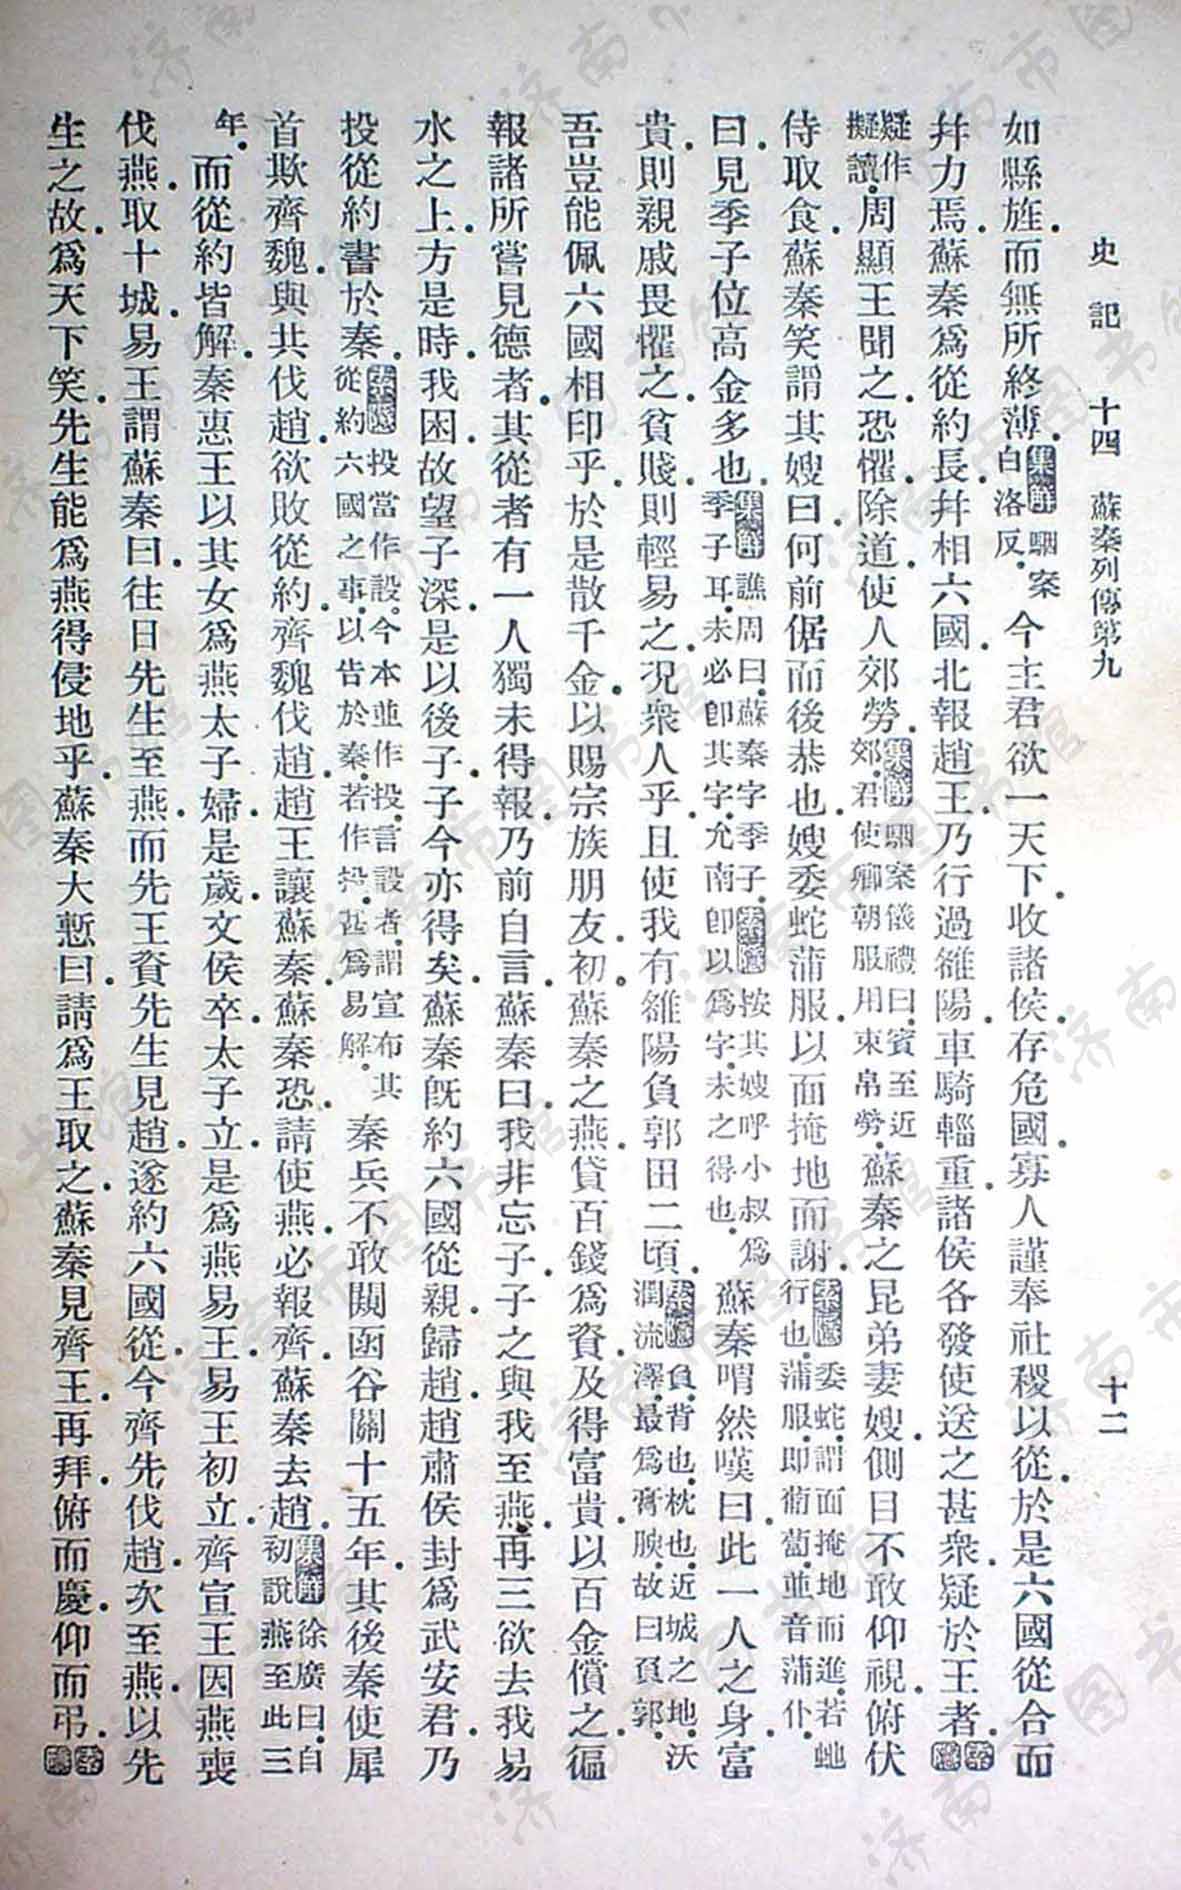 史記 十四 蘇秦列傳第九 十二
如縣旌.而無所終薄.集解駰案白洛反.今主君欲一天下.收諸侯.存危國.寡人謹奉社稷以從.於是六國從合而
幷力焉.蘇秦爲從約長.幷相六國.北報趙王.乃行過雒陽.車騎輜重.諸侯各發使送之甚衆.疑於王者.索隱
疑作擬讀.周顯王聞之.恐懼.除道.使人郊勞.集解駰案儀禮曰.賓至近郊.君使卿朝服用束帛勞.蘇秦之昆弟妻嫂.側目不敢仰視.俯伏
侍取食.蘇秦笑謂其嫂曰.何前倨而後恭也.嫂委蛇蒲服.以面掩地而謝.索隱委蛇.謂面掩地而進.若虵行也.蒲服.卽匍匐.並音蒲仆.
曰.見季子位高金多也.集解譙周曰.蘇秦字季子.索隱按其嫂呼小叔爲季子耳.未必卽其字.允南卽以爲字.未之得也.蘇秦喟然嘆曰.此一人之身.富
貴則親戚畏懼之.貧賤則輕易之.況衆人乎.且使我有雒陽負郭田二頃.索隱負.背也.枕也.近城之地.沃潤流澤.最爲膏腴.故曰負郭.
吾豈能佩六國相印乎.於是散千金.以賜宗族朋友.初.蘇秦之燕.貸百錢爲資.及得富貴.以百金償之.徧
報諸所嘗見德者.其從者有一人獨未得報.乃前自言.蘇秦曰.我非忘子.子之與我至燕.再三欲去我易
水之上.方是時.我困.故望子深.是以後子.子今亦得矣.蘇秦旣約六國從親.歸趙.趙肅侯封爲武安君.乃
投從約書於秦.索隱投當作設.今本並作投.言設者.謂宣布其從約六國之事.以告於秦.若作投.甚爲易解.秦兵不敢闚函谷關十五年.其後秦使犀
首欺齊魏.與共伐趙.欲敗從約.齊魏伐趙.趙王讓蘇秦.蘇秦恐.請使燕.必報齊.蘇秦去趙.集解徐廣曰.自初說燕至此三
年.而從約皆解.秦惠王以其女爲燕太子婦.是歲.文侯卒.太子立.是爲燕易王.易王初立.齊宣王因燕喪
伐燕.取十城.易王謂蘇秦曰.往日先生至燕.而先王資先生見趙.遂約六國從.今齊先伐趙.次至燕.以先
生之故.爲天下笑.先生能爲燕得侵地乎.蘇秦大慙曰.請爲王取之.蘇秦見齊王.再拜.俯而慶.仰而弔.索隱